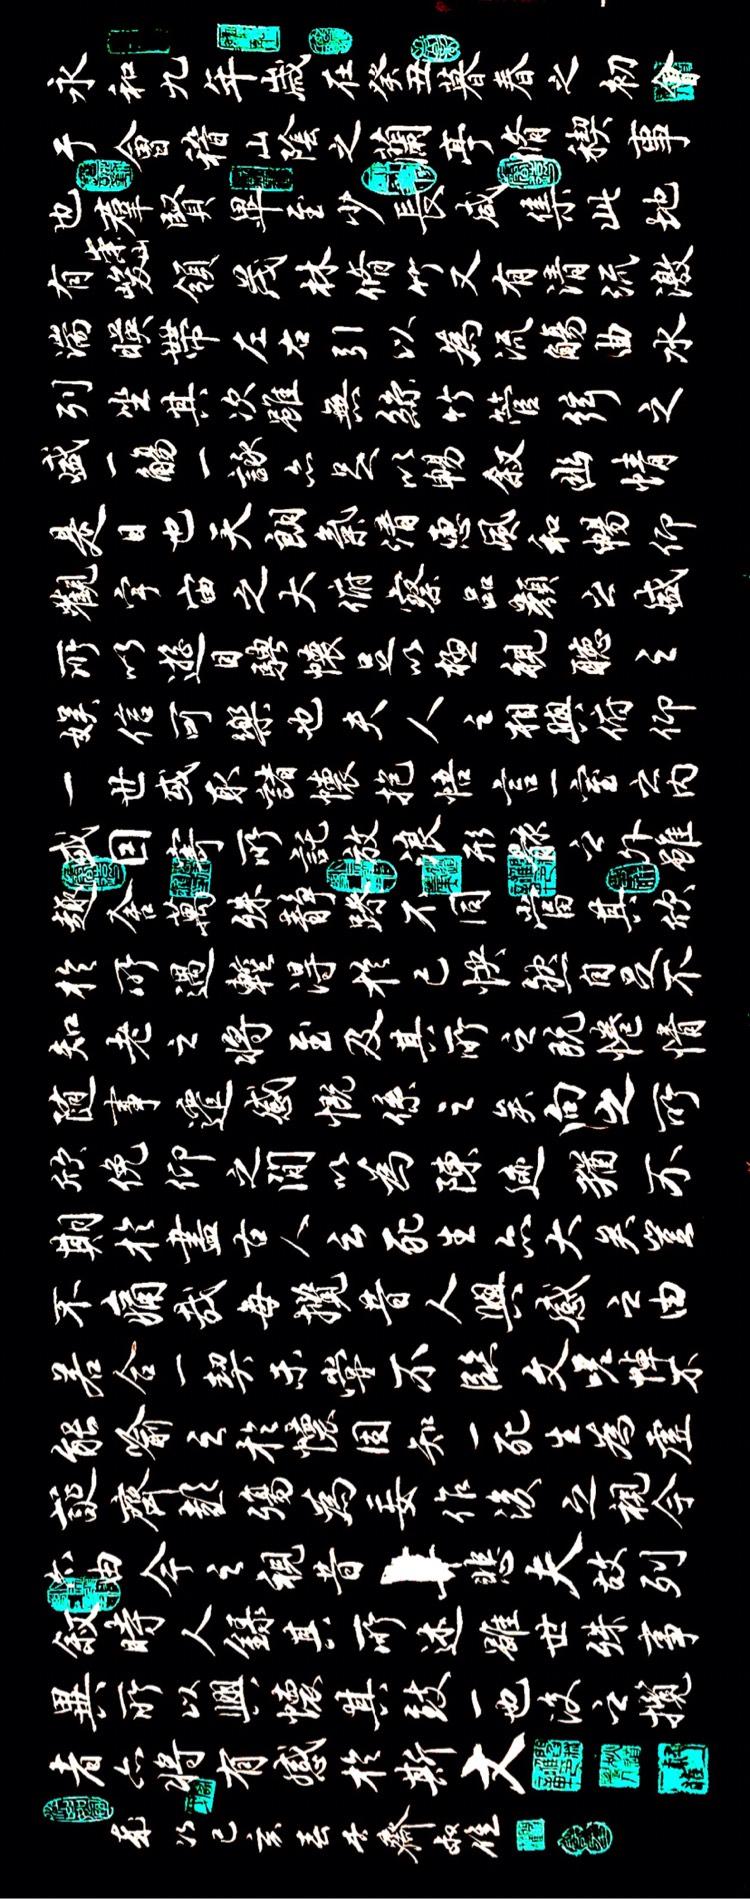 永和九年歲在癸丑暮春之初會
于會稽山陰之蘭亭脩稧事
也群賢畢至少長咸集此地
有崇山峻領茂林脩竹又有清流激
湍暎帶左右引以為流觴曲水
列坐其次雖無絲竹管絃之
盛一觴一詠亦足以暢敘幽情
是日也天朗氣清惠風和暢仰
觀宇宙之大俯察品類之盛
所以遊目騁懷足以極視聽之
娛信可樂也夫人之相與俯仰
一世或取諸懷抱悟言一室之內
或因寄所託放浪形骸之外雖
趣舍萬殊靜躁不同當其欣
於所遇輒得於己快然自足不
知老之將至及其所之既惓情
隨事遷感慨係之矣向之所
欣俛仰之閒以為陳迹猶不
期於盡古人云死生亦大矣豈
不痛哉每攬昔人興感之由
若合一契未嘗不臨文嗟悼不
能喻之於懷固知一死生為虛
誕齊彭殤為妄作後之視今
亦由今之視昔悲夫故列
敘時人錄其所述雖世殊事
異所以興懷其致一也後之攬
者亦將有感於斯文
己亥